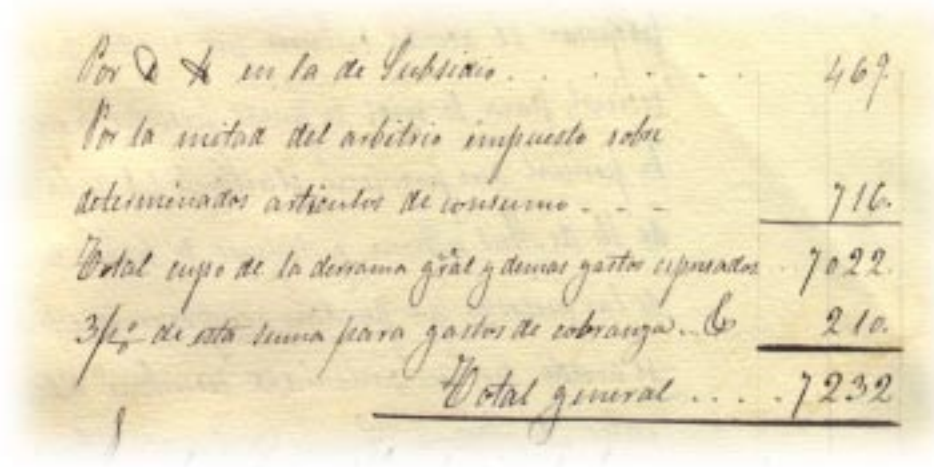 Por D X en la de Subsidio . . . . . . . . 469.
Por la mitad del arbitrio impuesto sobre
determinados articulos de consumo - - - 716.
Total cupo de la derrama gral y demas gastos espresados . 7022.
3 p% de esta suma para gastos de cobranza . . 210.
Total general . . . . 7232